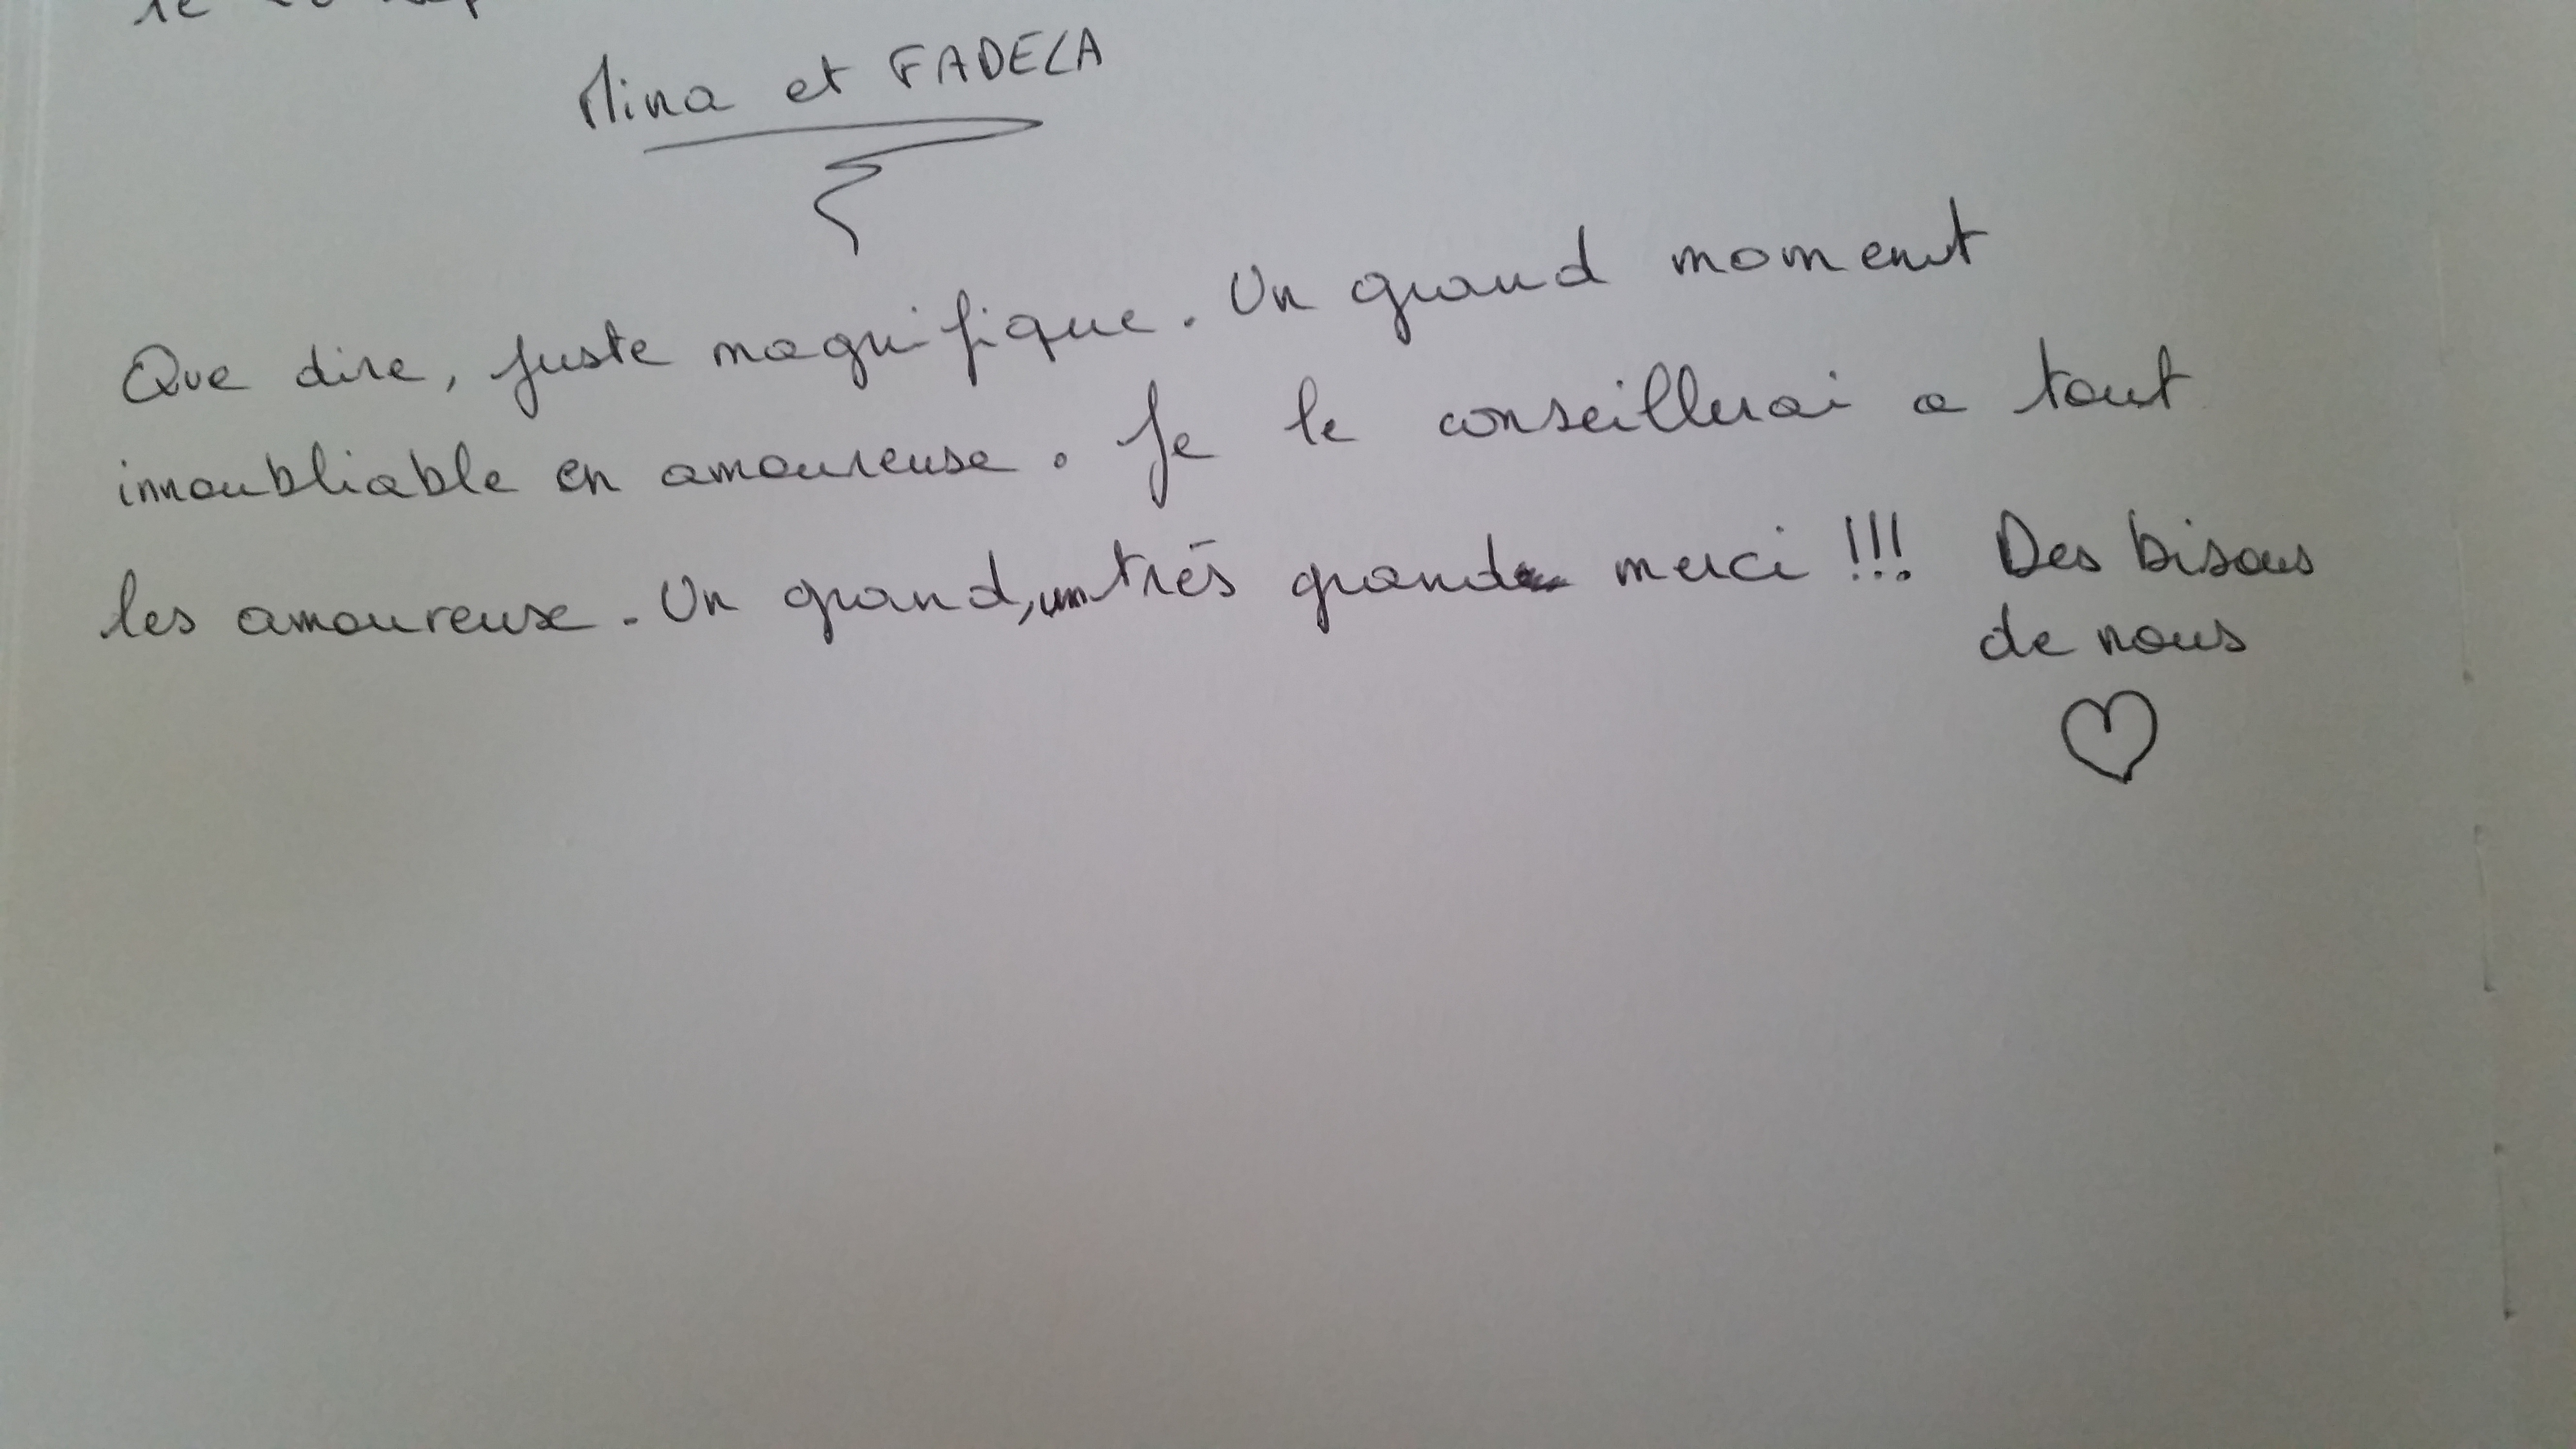 Mina et FADELA
Que dire, juste magnifique. Un grand moment
innoubliable en amoureuse. Je le conseillerai a tout
les amoureuse. Un grand, un très grand merci !!! Des bisous
de nous